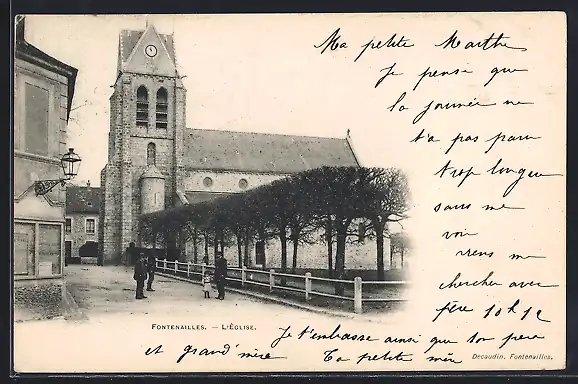 Ma petite Marthe
Je pense que
la journée ne
t'a pas paru
trop longue
sans me
voir
viens me
chercher avec
père 10h12
FONTENAILLES. — L'ÉGLISE.
Je t'embrasse ainsi que ton père
et grand'mère
Ta petite mère
Decaudin, Fontenailles.